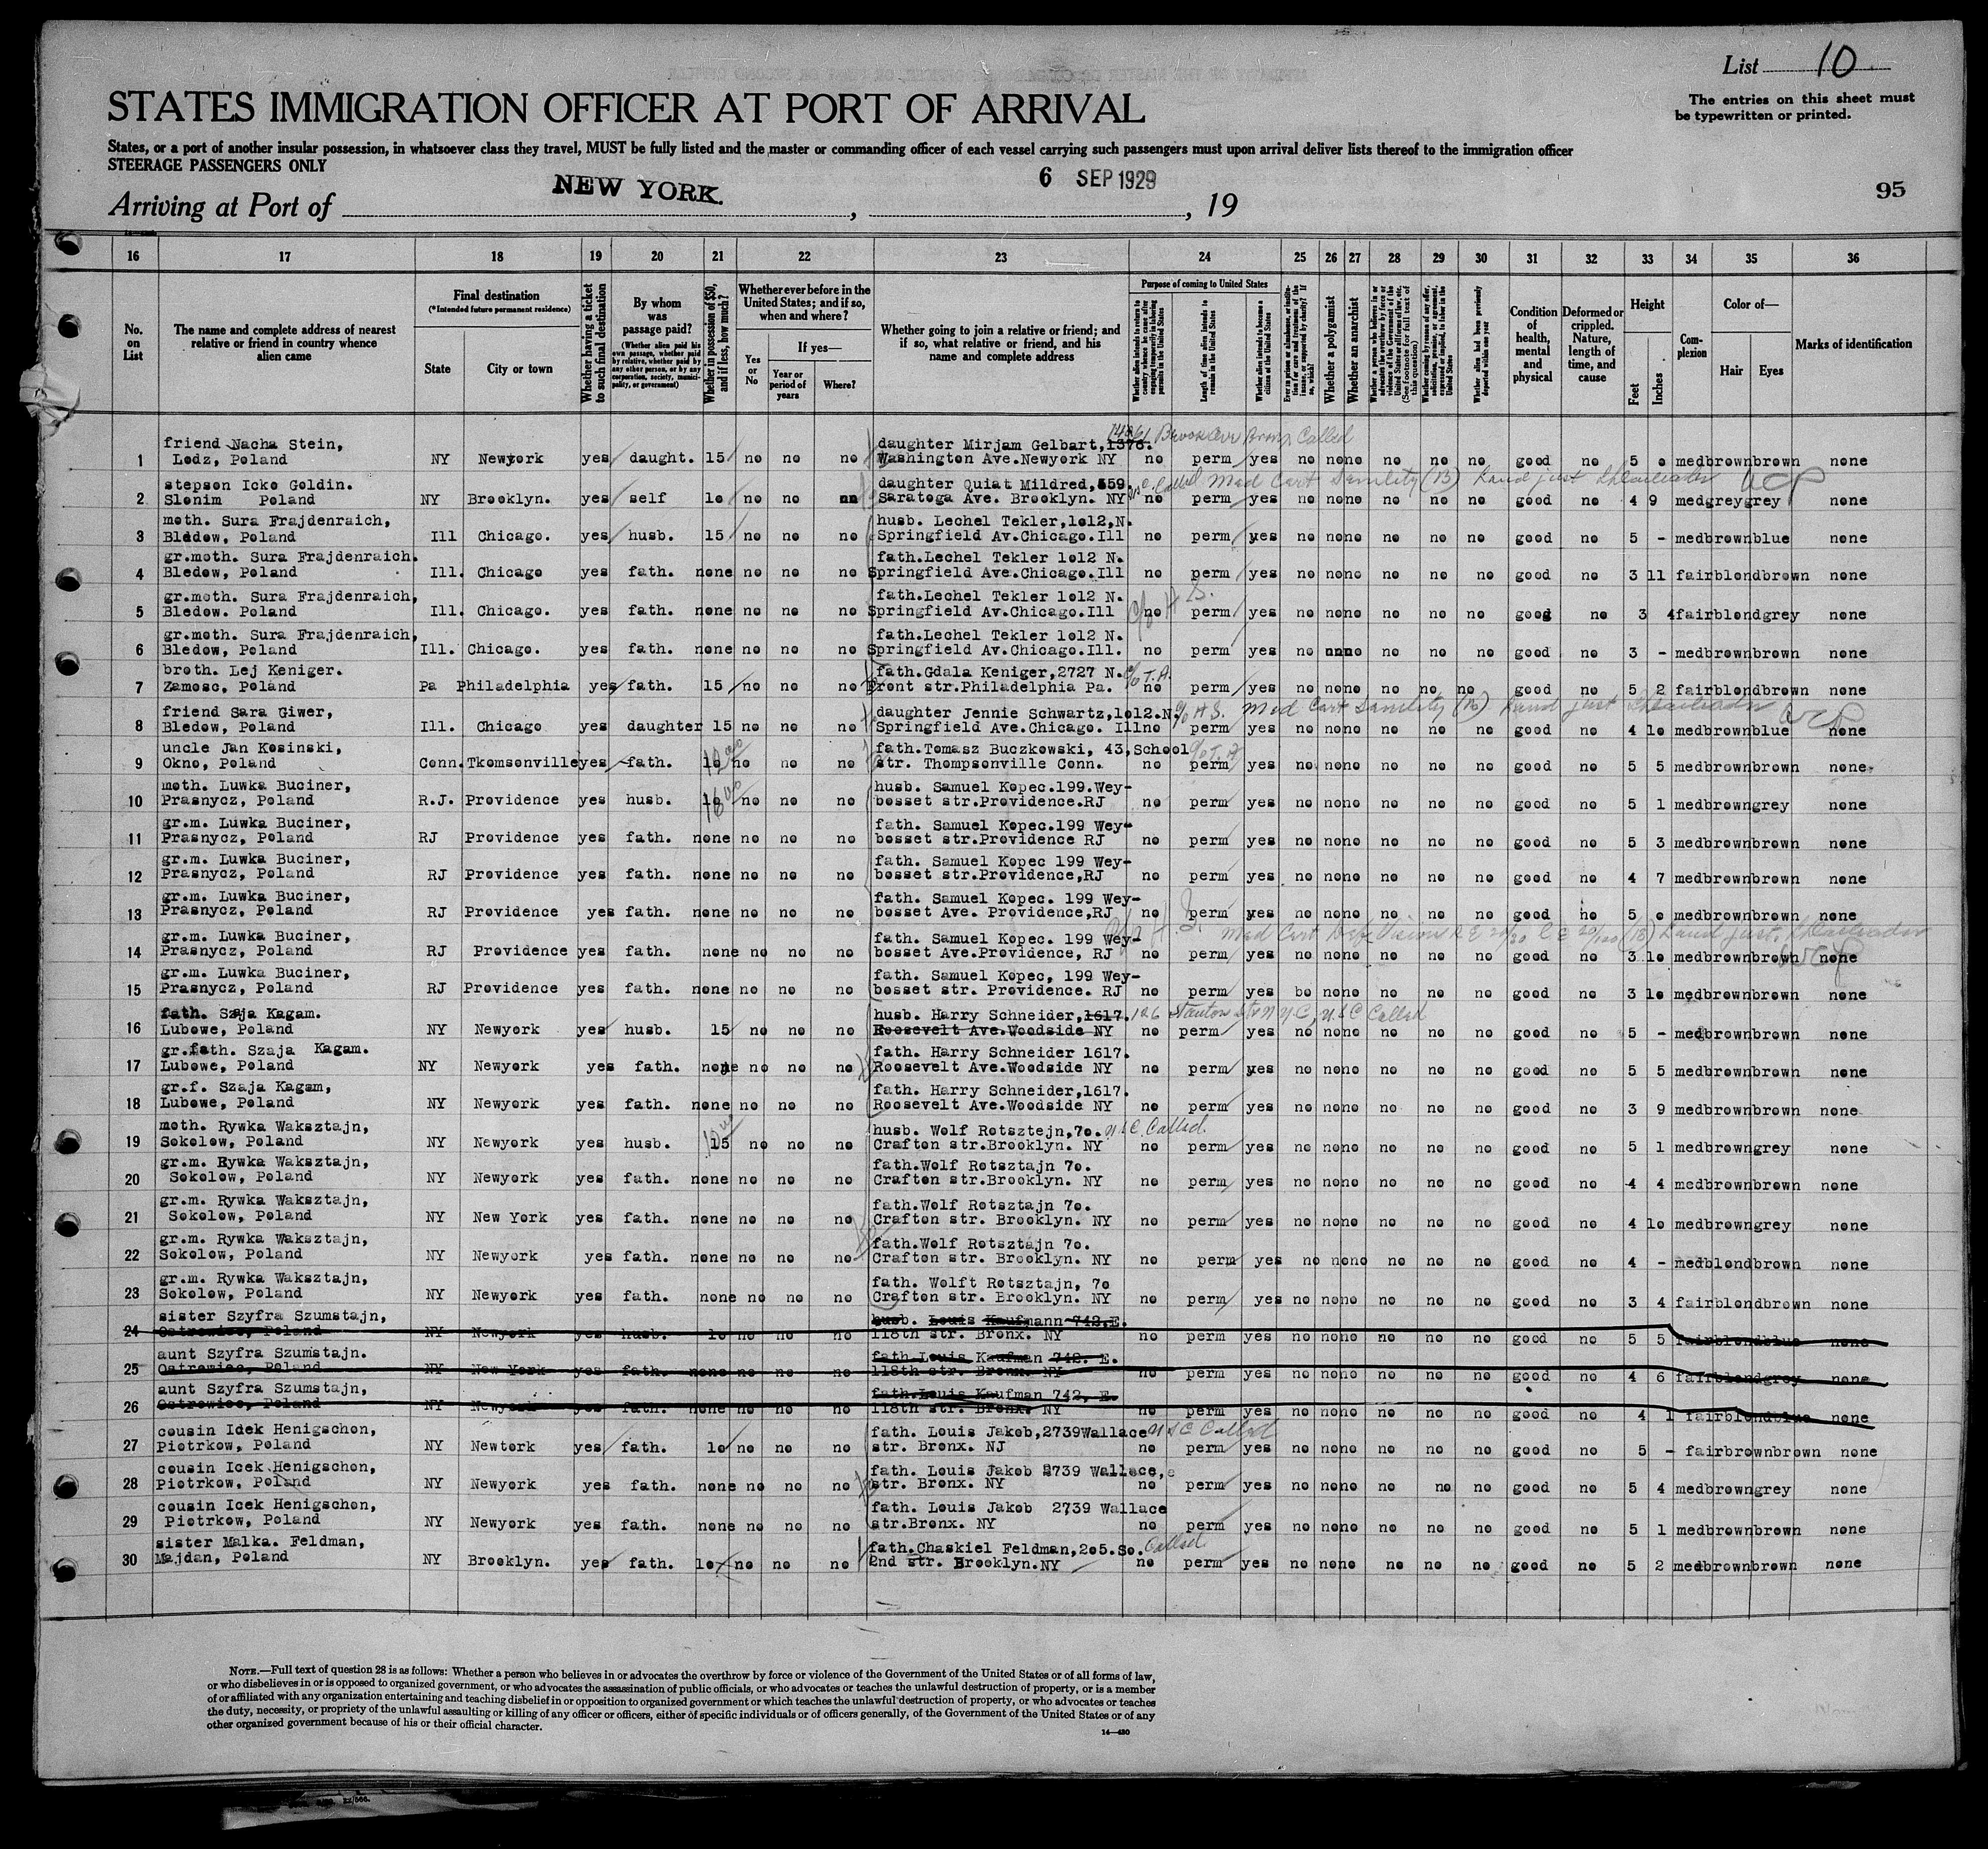 List 10
The entries on this sheet must
be typewritten or printed.
STATES IMMIGRATION OFFICER AT PORT OF ARRIVAL
States, or a port of another insular possession, in whatsoever class they travel, MUST be fully listed and the master or commanding officer of each vessel carrying such passengers must upon arrival deliver lists thereof to the immigration officer
STEERAGE PASSENGERS ONLY
Arriving at Port of NEW YORK. , 6 SEP 1929 , 19
95
16 17 18 19 20 21 22 23 24 25 26 27 28 29 30 31 32 33 34 35 36
No. on List
The name and complete address of nearest relative or friend in country whence alien came
Final destination
(*Intended future permanent residence)
State
City or town
Whether having a ticket to such final destination
By whom was passage paid?
(Whether alien paid his own passage, whether paid by relative, whether paid by any other person, or by any corporation, society, municipality, or government)
Whether in possession of $50, and if less, how much?
Whether ever before in the United States; and if so, when and where?
Yes or No
If yes—
Year or period of years
Where?
Whether going to join a relative or friend; and if so, what relative or friend, and his name and complete address
Purpose of coming to United States
Length of time alien intends to remain in the United States
Whether alien intends to become a citizen of the United States
Whether a polygamist
Whether an anarchist
Condition of health, mental and physical
Deformed or crippled. Nature, length of time, and cause
Height
Feet
Inches
Complexion
Color of—
Hair
Eyes
Marks of identification
friend Nacha Stein, daughter Mirjam Gelbart,1376. Brook Ave Bronx Called
1 Lodz, Poland NY Newyork yes daught. 15 no no no Washington Ave.Newyork NY no perm yes no no no no no no good no 5 o med brown brown none
stepson Icko Goldin. daughter Quiat Mildred, 559. Called Med Cert Senility (B)
2 Slonim Poland NY Brooklyn. yes self 10 no no no Saratoga Ave. Brooklyn. NY no perm yes no no no no no no good no 4 9 med grey grey none
moth. Sura Frajdenraich, husb. Lechel Tekler,1o12,N.
3 Bledow, Poland Ill Chicago. yes husb. 15 no no no Springfield Av.Chicago.Ill no perm yes no no no no no no good no 5 - med brown blue none
gr.moth. Sura Frajdenraich. fath.Lechel Tekler 1o12 N.
4 Bledow, Poland Ill. Chicago yes fath. none no no no Springfield Ave.Chicago.Ill no perm yes no no no no no no good no 3 11 fair blond brown none
gr.moth. Sura Frajdenraich, fath.Lechel Tekler 1o12 N.
5 Bledow. Poland Ill. Chicago. yes fath. none no no no Springfield Av.Chicago.Ill no perm yes no no no no no no good no 3 4 fair blond grey none
gr.moth. Sura Frajdenraich, fath.Lechel Tekler 1o12 N.
6 Bledow, Poland Ill. Chicago. yes fath. none no no no Springfield Av.Chicago.Ill. no perm yes no no no no no no good no 3 - med brown brown none
broth. Lej Keniger. fath.Gdala Keniger,2727 N.
7 Zamosc, Poland Pa Philadelphia yes fath. 15 no no no Front str.Philadelphia Pa. no perm yes no no no no no no good no 5 2 fair blond brown none
friend Sara Giwer, daughter Jennie Schwartz,1o12.N. Med Cert Senility (B)
8 Bledow, Poland Ill. Chicago yes daughter 15 no no no Springfield Ave.Chicago. Ill no perm yes no no no no no no good no 4 1o med brown blue none
uncle Jan Kosinski, fath.Tomasz Buczkowski, 43,School
9 Okno, Poland Conn. Tkomsonville yes fath. 10 no no no str. Thompsonville Conn. no perm yes no no no no no no good no 5 5 med brown brown none
moth. Luwka Buciner, husb. Samuel Kopec.199.Wey-
10 Prasnycz, Poland R.J. Providence yes husb. 10 no no no bosset str.Providence.RJ no perm yes no no no no no no good no 5 1 med brown grey none
gr.m. Luwka Buciner, fath. Samuel Kopec.199 Wey-
11 Prasnycz, Poland RJ Providence yes fath. none no no no bosset str.Providence RJ no perm yes no no no no no no good no 5 3 med brown brown none
gr.m. Luwka Buciner, fath. Samuel Kopec 199 Wey-
12 Prasnycz, Poland RJ Providence yes fath. none no no no bosset str.Providence,RJ no perm yes no no no no no no good no 4 7 med brown brown none
gr.m. Luwka Buciner, fath. Samuel Kopec. 199 Wey-
13 Prasnycz, Poland RJ Providence yes fath. none no no no bosset Ave. Providence,RJ no perm yes no no no no no no good no 5 o med brown brown none
gr.m. Luwka Buciner, fath. Samuel Kopec. 199 Wey- Med Cert Def Vision
14 Prasnycz, Poland RJ Providence yes fath. none no no no bosset Ave.Providence, RJ no perm yes no no no no no no good no 3 1o med brown brown none
gr.m. Luwka Buciner, fath. Samuel Kopec, 199 Wey-
15 Prasnycz, Poland RJ Providence yes fath. none no no no bosset str. Providence. RJ no perm yes bo no no no no no good no 3 1o med brown brown none
fath. Szaja Kagam. husb. Harry Schneider,1617. 126 Stanton Str N Y C, U S C Called
16 Lubowe, Poland NY Newyork yes husb. 15 no no no Roosevelt Ave.Woodside NY no perm yes no no no no no no good no 5 - med brown brown none
gr.fath. Szaja Kagam. fath. Harry Schneider 1617.
17 Lubowe, Poland NY Newyork yes fath. none no no no Roosevelt Ave.Woodside NY no perm yes no no no no no no good no 5 5 med brown brown none
gr.f. Szaja Kagam, fath. Harry Schneider,1617.
18 Lubowe, Poland NY Newyork yes fath. none no no no Roosevelt Ave.Woodside NY no perm yes no no no no no no good no 3 9 med brown brown none
moth. Rywka Waksztajn, husb. Wolf Rotsztejn,7o. U S C. Called
19 Sokolow, Poland NY Newyork yes husb. 15 no no no Crafton str.Brooklyn. NY no perm yes no no no no no no good no 5 1 med brown grey none
gr.m. Rywka Waksztajn, fath.Wolf Rotsztajn 7o.
20 Sokolow, Poland NY Newyork yes fath. none no no no Crafton str.Brooklyn. NY no perm yes no no no no no no good no 4 4 med brown brown none
gr.m. Rywka Waksztajn, fath.Wolf Rotsztajn 7o.
21 Sokolow, Poland NY New York yes fath. none no no no Crafton str. Brooklyn. NY no perm yes no no no no no no good no 4 1o med brown grey none
gr.m. Rywka Waksztajn, fath.Wolf Rotsztajn 7o.
22 Sokolow, Poland NY Newyork yes fath. none no no no Crafton str. Brooklyn. NY no perm yes no no no no no no good no 4 - med blond brown none
gr.m. Rywka Waksztajn, fath. Wolft Rotsztajn, 7o
23 Sokolow, Poland NY Newyork yes fath. none no no no Crafton str. Brooklyn. NY no perm yes no no no no no no good no 3 4 fair blond brown none
sister Szyfra Szumstajn, husb. Louis Kaufmann 742,E.
24 Ostrowiec, Poland NY Newyork yes husb. 10 no no no 118th str. Bronx. NY no perm yes no no no no no no good no 5 5 fair blond blue none
aunt Szyfra Szumstajn. fath.Louis Kaufman 742. E.
25 Ostrowiec, Poland NY New York yes fath. none no no no 118th str. Bronx. NY no perm yes no no no no no no good no 4 6 fair blond grey none
aunt Szyfra Szumstajn, fath.Louis Kaufman 742, E.
26 Ostrowiec, Poland NY Newyork yes fath. none no no no 118th str. Bronx. NY no perm yes no no no no no no good no 4 1 fair blond blue none
cousin Idek Henigschon, fath. Louis Jakob,2739Wallace U S C Called
27 Piotrkow, Poland NY Newtork yes fath. 10 no no no str. Bronx. NJ no perm yes no no no no no no good no 5 - fair brown brown none
cousin Icek Henigschon, fath. Louis Jakob 2739 Wallace,
28 Piotrkow, Poland NY Newyork yes fath. none no no no str. Bronx. NY no perm yes no no no no no no good no 5 4 med brown grey none
cousin Icek Henigschon, fath. Louis Jakob 2739 Wallace
29 Piotrkow, Poland NY Newyork yes fath. none no no no str.Bronx. NY no perm yes no no no no no no good no 5 1 med brown brown none
sister Malka. Feldman, fath.Chaskiel Feldman,2o5.So. Called
30 Majdan, Poland NY Brooklyn. yes fath. 10 no no no 2nd str. Brooklyn.NY no perm yes no no no no no no good no 5 2 med brown brown none
NOTE.—Full text of question 28 is as follows: Whether a person who believes in or advocates the overthrow by force or violence of the Government of the United States or of all forms of law,
or who disbelieves in or is opposed to organized government, or who advocates the assassination of public officials, or who advocates or teaches the unlawful destruction of property, or is a member
of or affiliated with any organization entertaining and teaching disbelief in or opposition to organized government or which teaches the unlawful destruction of property, or who advocates or teaches
the duty, necessity, or propriety of the unlawful assaulting or killing of any officer or officers, either of specific individuals or of officers generally, of the Government of the United States or of any
other organized government because of his or their official character.
14—430